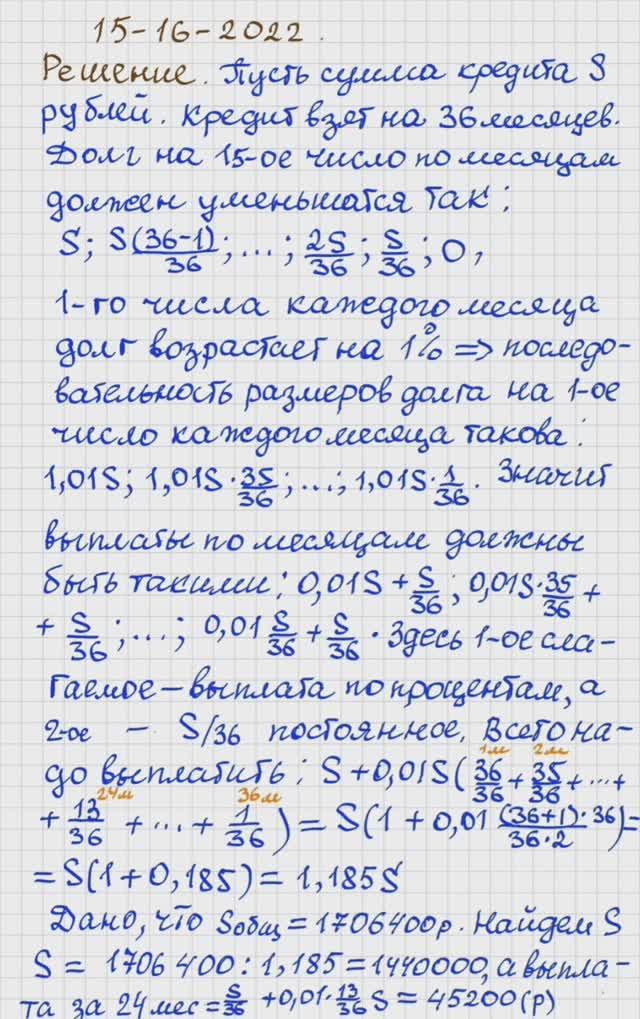 15-16-2022.
Решение. Пусть сумма кредита S
рублей. Кредит взят на 36 месяцев.
Долг на 15-ое число по месяцам
должен уменьшатся так:
S; S(36-1)/36; ...; 2S/36; S/36; 0,
1-го числа каждого месяца
долг возрастает на 1% => последо-
вательность размеров долга на 1-ое
число каждого месяца такова:
1,01S; 1,01S·35/36; ...; 1,01S·1/36. Значит
выплаты по месяцам должны
быть такими: 0,01S + S/36; 0,01S·35/36 +
+ S/36; ...; 0,01 S/36 + S/36. Здесь 1-ое сла-
гаемое – выплата по процентам, а
2-ое – S/36 постоянное. Всего на-
1м 2м
до выплатить: S+0,01S(36/36 + 35/36 + ... +
24м 36м
+ 13/36 + ... + 1/36) = S(1 + 0,01 (36+1)·36/36·2) =
= S(1+0,185) = 1,185S
Дано, что Sобщ = 1706400р. Найдем S
S = 1706 400 : 1,185 = 1440000, а выпла-
та за 24 мес = S/36 + 0,01·13/36 S = 45200(р)